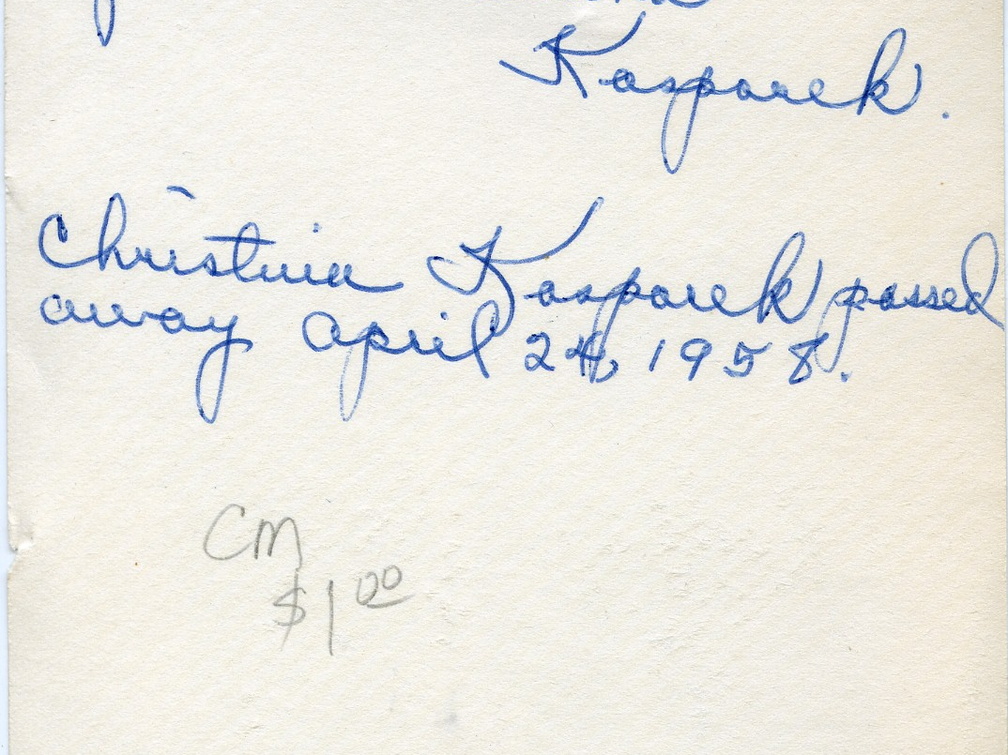 Kasparek.
Christina Kasparek passed
away april 24, 1958.
CM
$1 00